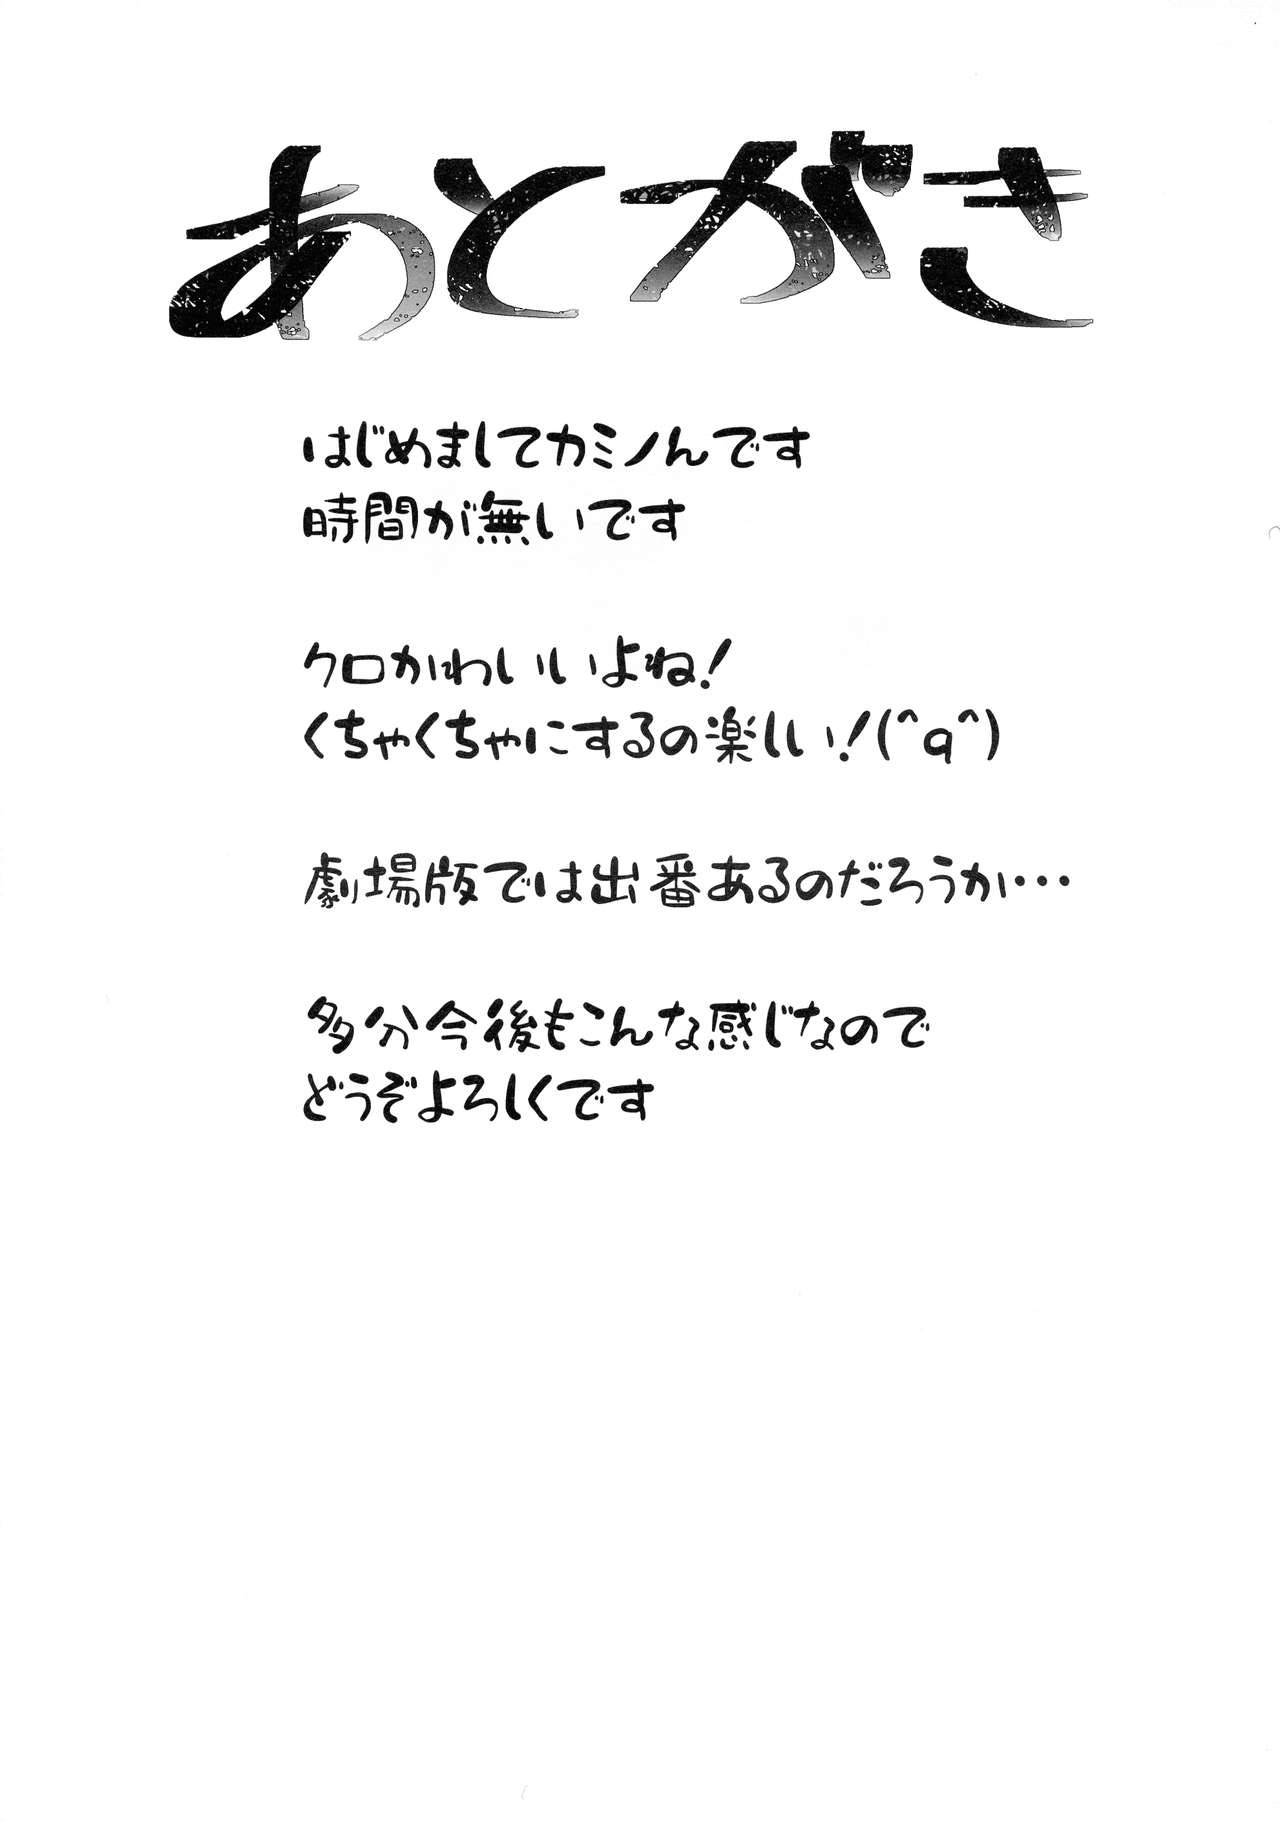 あとがき
はじめましてカミノんです
時間が無いです
クロかわいいよね！
くちゃくちゃにするの楽しい！(^q^)
劇場版では出番あるのだろうか・・・
多分今後もこんな感じなので
どうぞよろしくです